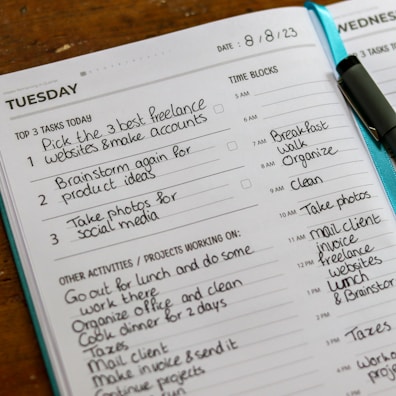 TUESDAY
DATE : 8/8/23
TOP 3 TASKS TODAY
1 Pick the 3 best freelance
websites & make accounts
2 Brainstorm again for
product ideas
3 Take photos for
social media
OTHER ACTIVITIES / PROJECTS WORKING ON:
Go out for lunch and do some
work there
Organize office and clean
Cook dinner for 2 days
Taxes
Mail client
Make invoice & send it
Continue projects
TIME BLOCKS
5 AM
6 AM
7 AM Breakfast
walk
8 AM Organize
9 AM clean
10 AM Take photos
11 AM mail client
invoice
12 PM freelance
websites
1 PM lunch
2 PM & Brainstor
3 PM Taxes
4 PM
proje
WEDNES
TOP 3 TASKS T
1
2
3